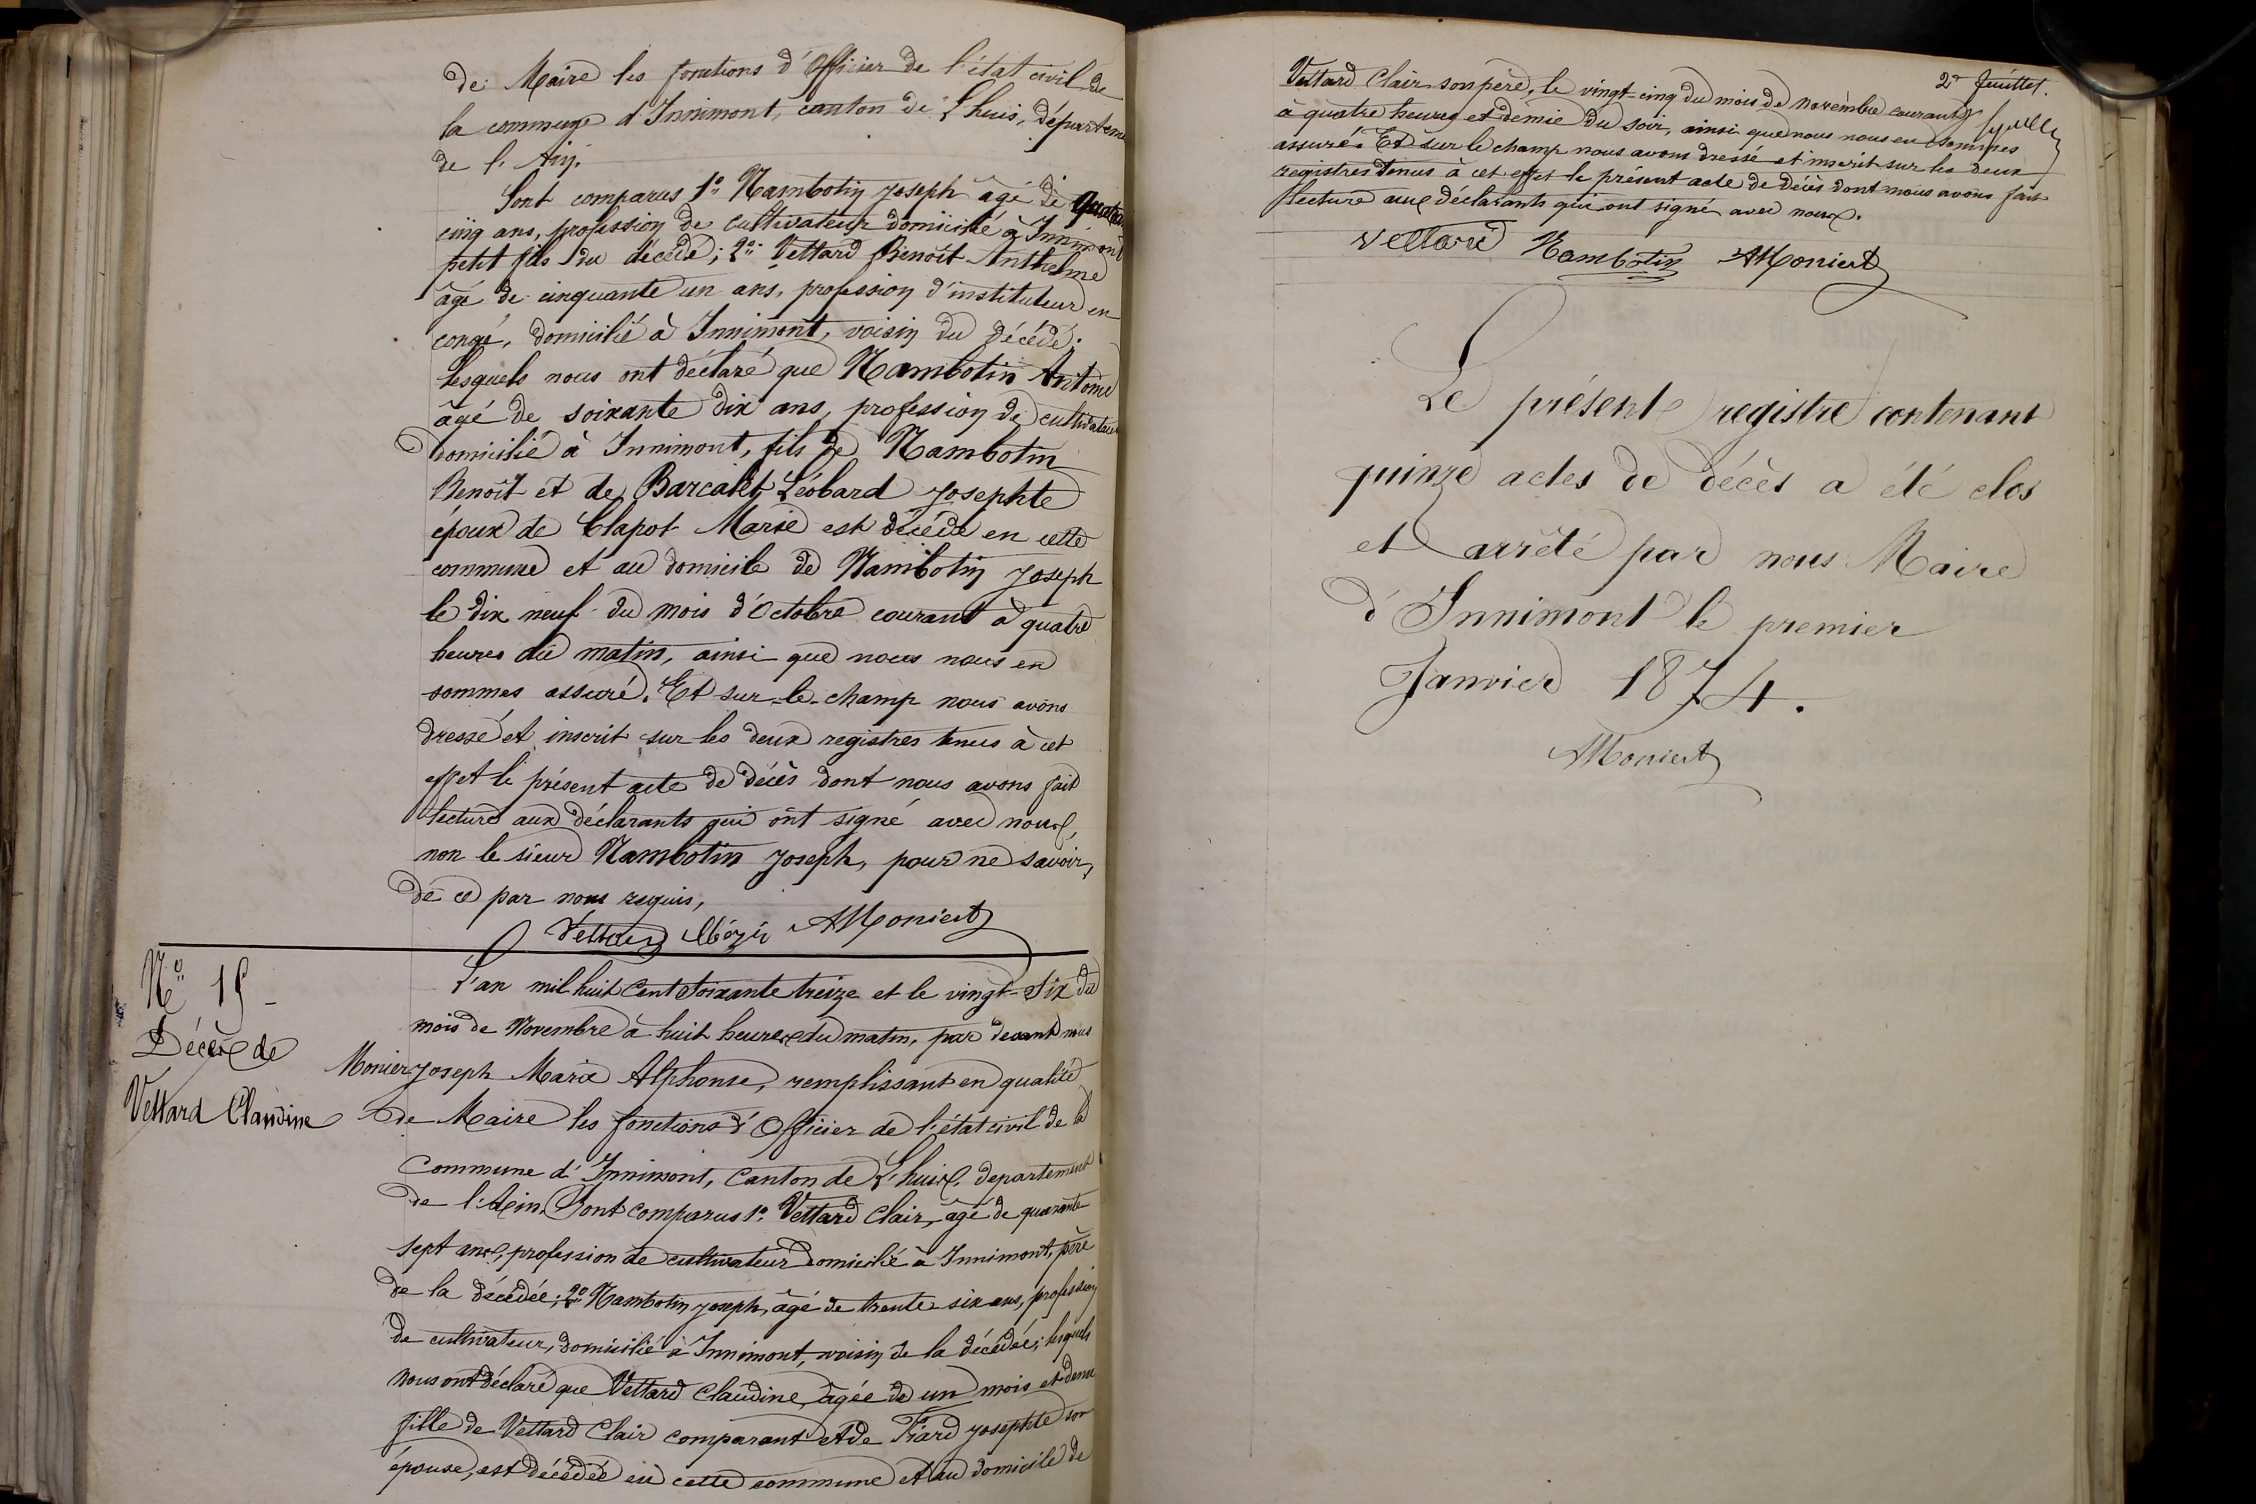 de Maire les fonctions d'Officier de l'état civil de
la commune d'Innimont, canton de Lhuis, départeme
de l'Ain.
Sont comparus 1° Nambotin Joseph âgé de quarante
cinq ans, profession de cultivateur domicilié à Innimont
petit fils du décédé; 2° Vettard Benoît Anthelme
âgé de cinquante un ans, profession d'instituteur en
congé, domicilié à Innimont, voisin du décédé.
Lesquels nous ont déclaré que Nambotin Antoine
âgé de soixante dix ans, profession de cultivateur
domicilié à Innimont, fils de Nambotin
Benoît et de Barcalet Léobard Josephte
époux de Clapot Marie est décédé en cette
commune et au domicile de Nambotin Joseph
le dix neuf du mois d'Octobre courant à quatre
heures du matin, ainsi que nous nous en
sommes assuré. Et sur-le-champ nous avons
dressé et inscrit sur les deux registres tenus à cet
effet le présent acte de décès dont nous avons fait
lecture aux déclarants qui ont signé avec nous,
non le sieur Nambotin Joseph, pour ne savoir,
de ce par nous requis,
Vettard AMoniert
N° 15
Décès de
Vettard Claudine
L'an mil huit cent soixante treize et le vingt-six du
mois de Novembre à huit heures du matin, par devant nous
Monier Joseph Marie Alphonse, remplissant en qualité
de Maire les fonctions d'Officier de l'état civil de la
Commune d'Innimont, Canton de Lhuis, departement
de l'Ain. Sont comparus 1° Vettard Clair, âgé de quarante
sept ans, profession de cultivateur domicilié à Innimont, père
de la décédée; 2° Nambotin Joseph, âgé de trente six ans, profession
de cultivateur, domicilié à Innimont, voisin de la décédée; lesquels
nous ont déclaré que Vettard Claudine, âgée de un mois et demi
fille de Vettard Clair comparant et de Fiard Josephte son
épouse, est décédée en cette commune et au domicile de
2e feuillet.
Vettard Clair son père, le vingt-cinq du mois de novembre courant
à quatre heures et demie du soir, ainsi que nous nous en sommes
assuré. Et sur le champ nous avons dressé et inscrit sur les deux
registres tenus à cet effet le présent acte de décès dont nous avons fait
lecture aux déclarants qui ont signé avec nous.
Vettard Nambotin AMoniert
Le présent registre contenant
quinze actes de décès a été clos
et arrêté par nous Maire
d'Innimont le premier
Janvier 1874.
AMoniert